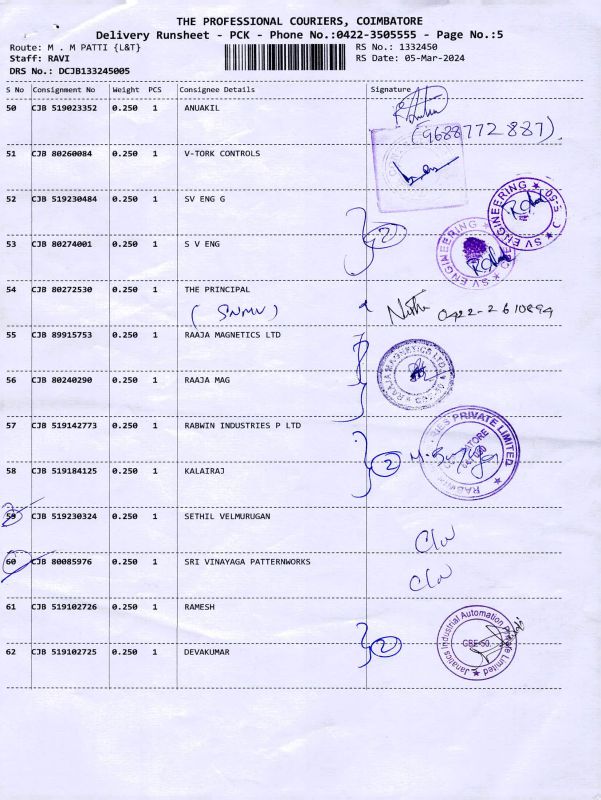 THE PROFESSIONAL COURIERS, COIMBATORE
Delivery Runsheet - PCK - Phone No.:0422-3505555 - Page No.:5
Route: M . M PATTI {L&T} RS No.: 1332450
Staff: RAVI RS Date: 05-Mar-2024
DRS No.: DCJB133245005
S No Consignment No Weight PCS Consignee Details Signature
50 CJB 519023352 0.250 1 ANUAKIL
(9688772887).
51 CJB 80260084 0.250 1 V-TORK CONTROLS
52 CJB 519230484 0.250 1 SV ENG G
SV ENGINEERING
2
53 CJB 80274001 0.250 1 S V ENG
SV ENGINEERING
54 CJB 80272530 0.250 1 THE PRINCIPAL
(SNMV) 0422-2610894
55 CJB 89915753 0.250 1 RAAJA MAGNETICS LTD
RAAJA MAGNETICS LTD
56 CJB 80240290 0.250 1 RAAJA MAG
57 CJB 519142773 0.250 1 RABWIN INDUSTRIES P LTD
PRIVATE LIMITED
2
58 CJB 519184125 0.250 1 KALAIRAJ
59 CJB 519230324 0.250 1 SETHIL VELMURUGAN
60 CJB 80085976 0.250 1 SRI VINAYAGA PATTERNWORKS
61 CJB 519102726 0.250 1 RAMESH
Janatics Industrial Automation Private Limited
2
62 CJB 519102725 0.250 1 DEVAKUMAR